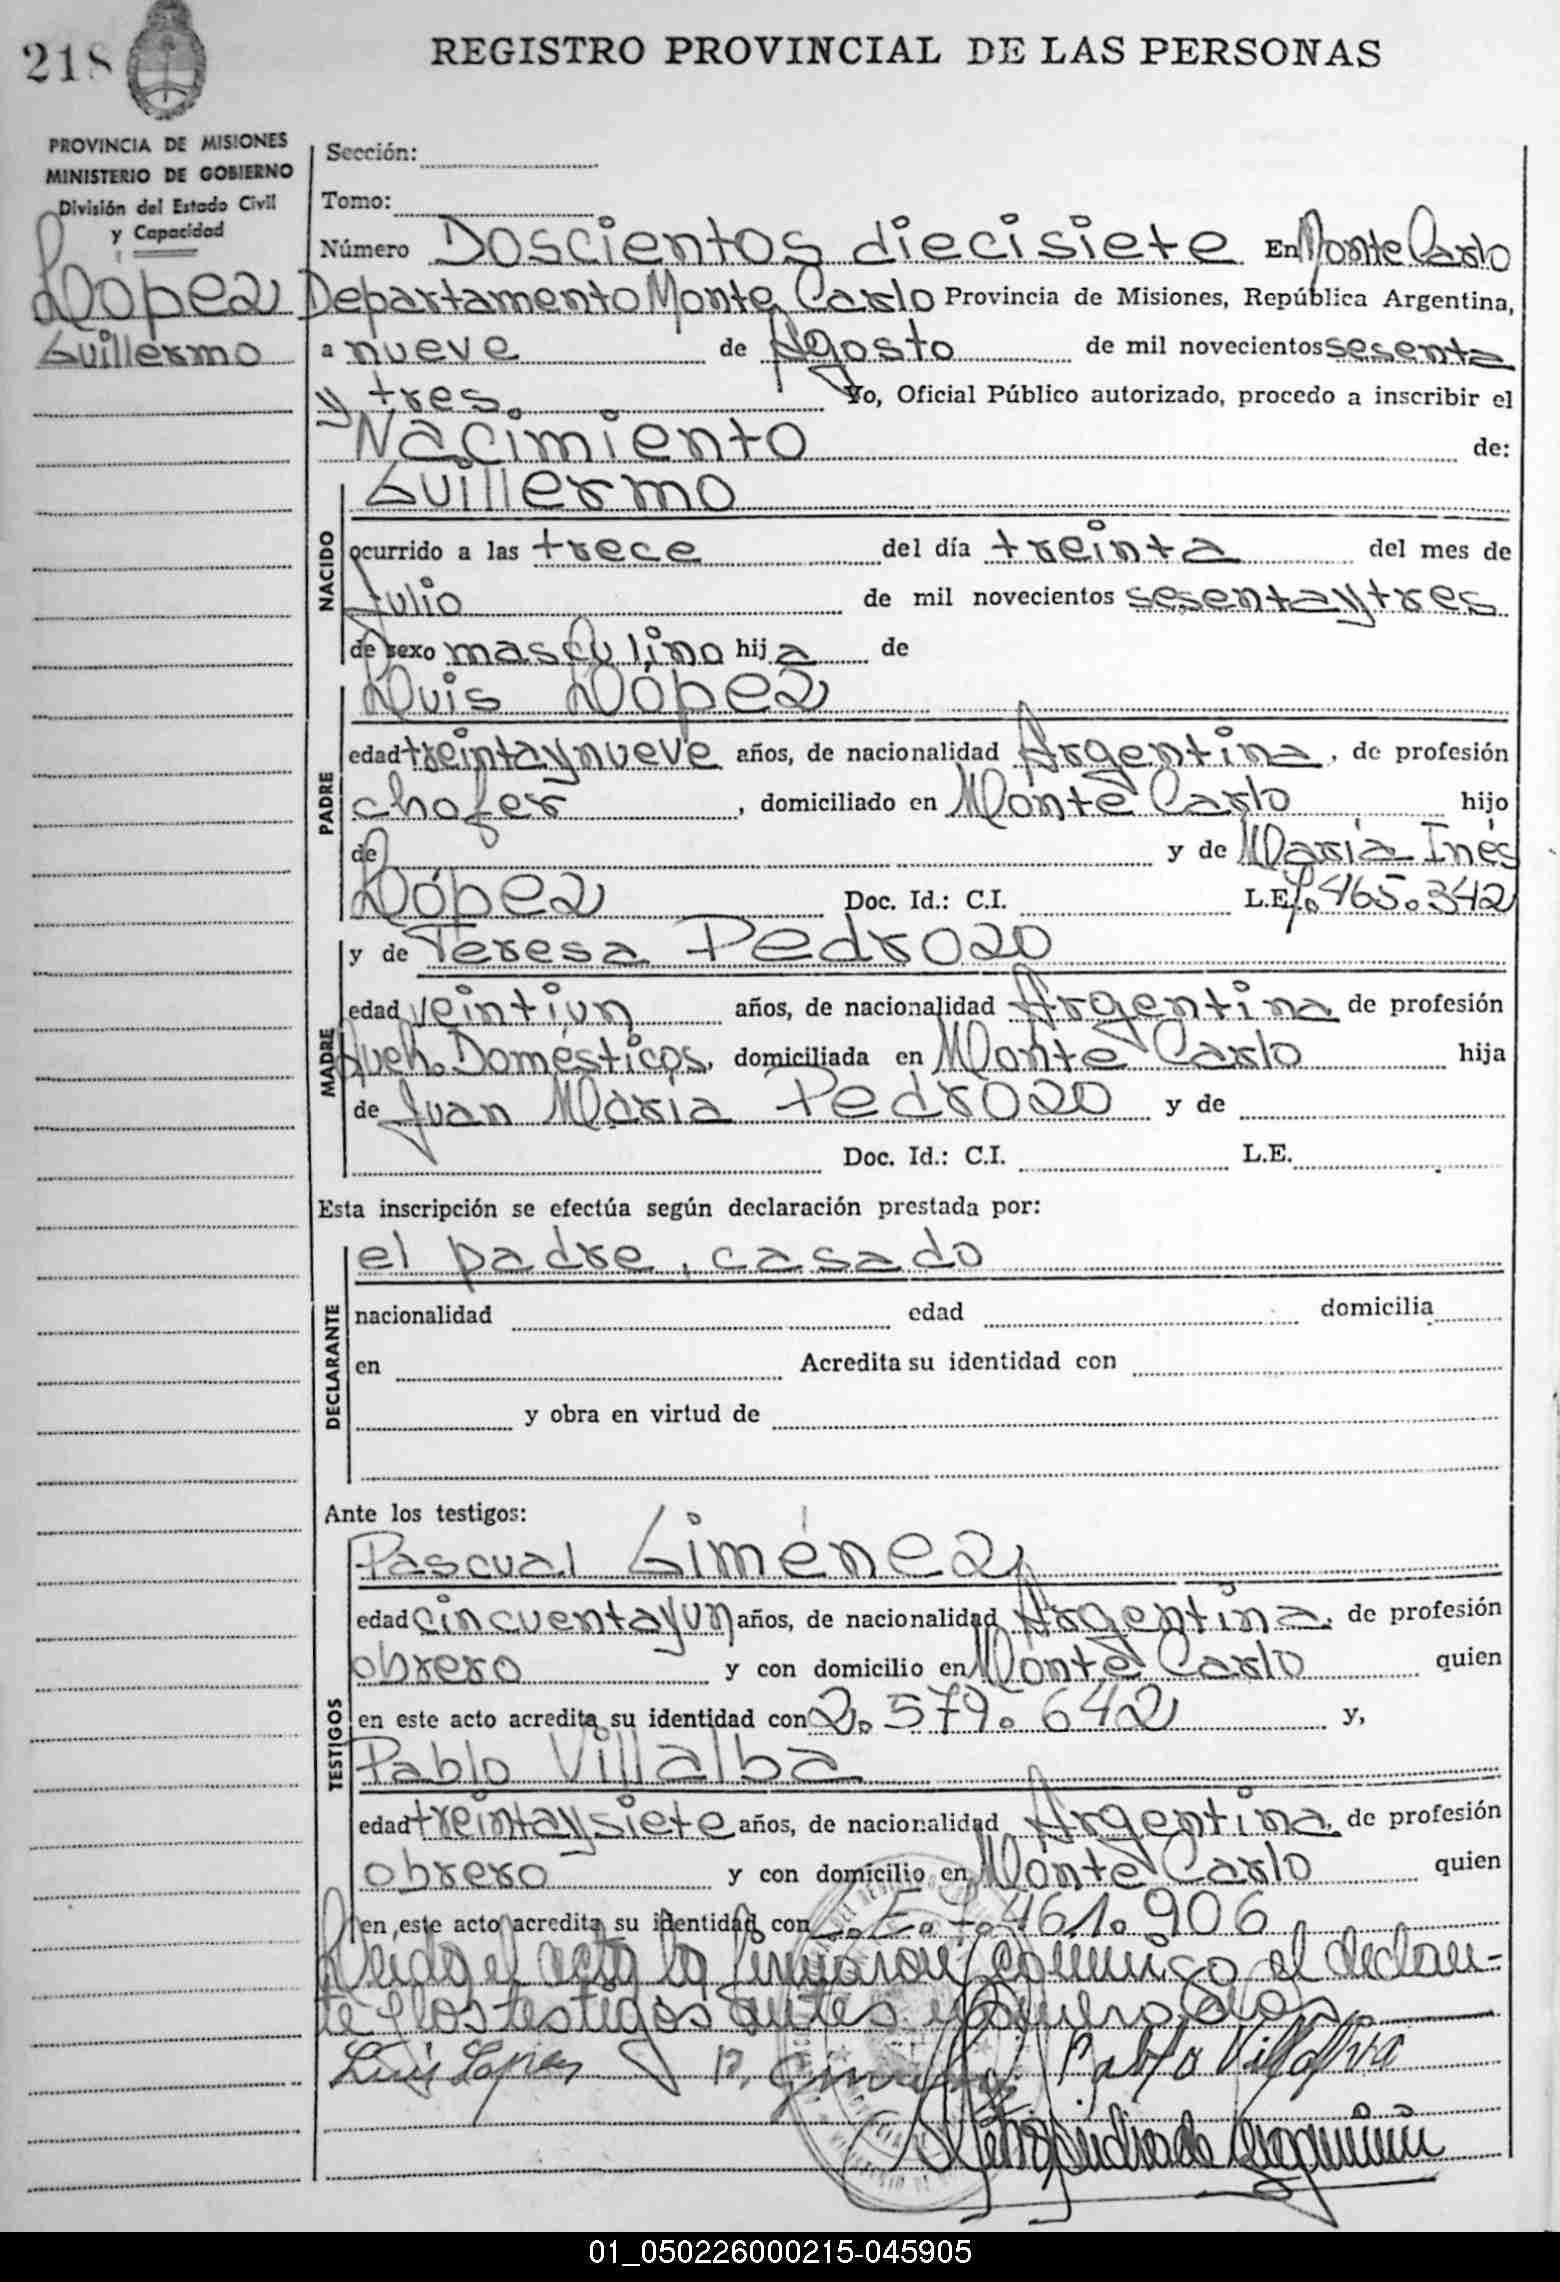 218
REGISTRO PROVINCIAL DE LAS PERSONAS
PROVINCIA DE MISIONES
MINISTERIO DE GOBIERNO
División del Estado Civil
y Capacidad
López
Guillermo
Sección:
Tomo:
Número Doscientos diecisiete En Monte Carlo
Departamento Monte Carlo Provincia de Misiones, República Argentina,
a nueve de Agosto de mil novecientos sesenta
y tres. Yo, Oficial Público autorizado, procedo a inscribir el
Nacimiento de:
NACIDO
Guillermo
ocurrido a las trece del día treinta del mes de
Julio de mil novecientos sesenta y tres
de sexo masculino hij a de
PADRE
Luis López
edad treinta y nueve años, de nacionalidad Argentina, de profesión
chofer, domiciliado en Monte Carlo hijo
de y de María Inés
López Doc. Id.: C.I. L.E. 7.465.342
MADRE
y de Teresa Pedrozo
edad veintiun años, de nacionalidad Argentina de profesión
Queh. Domésticos, domiciliada en Monte Carlo hija
de Juan María Pedrozo y de
Doc. Id.: C.I. L.E.
Esta inscripción se efectúa según declaración prestada por:
DECLARANTE
el padre, casado
nacionalidad edad domicilia
en Acredita su identidad con
y obra en virtud de
Ante los testigos:
TESTIGOS
Pascual Giménez
edad cincuenta y un años, de nacionalidad Argentina, de profesión
obrero y con domicilio en Monte Carlo quien
en este acto acredita su identidad con 2.579.642 y,
Pablo Villalba
edad treinta y siete años, de nacionalidad Argentina, de profesión
obrero y con domicilio en Monte Carlo quien
en este acto acredita su identidad con L.E.7.461.906
Leida el acta la firmaron conmigo el declaran-
te y los testigos antes
Luis Lopez P. Gimenez Pablo Villalva
01_050226000215-045905